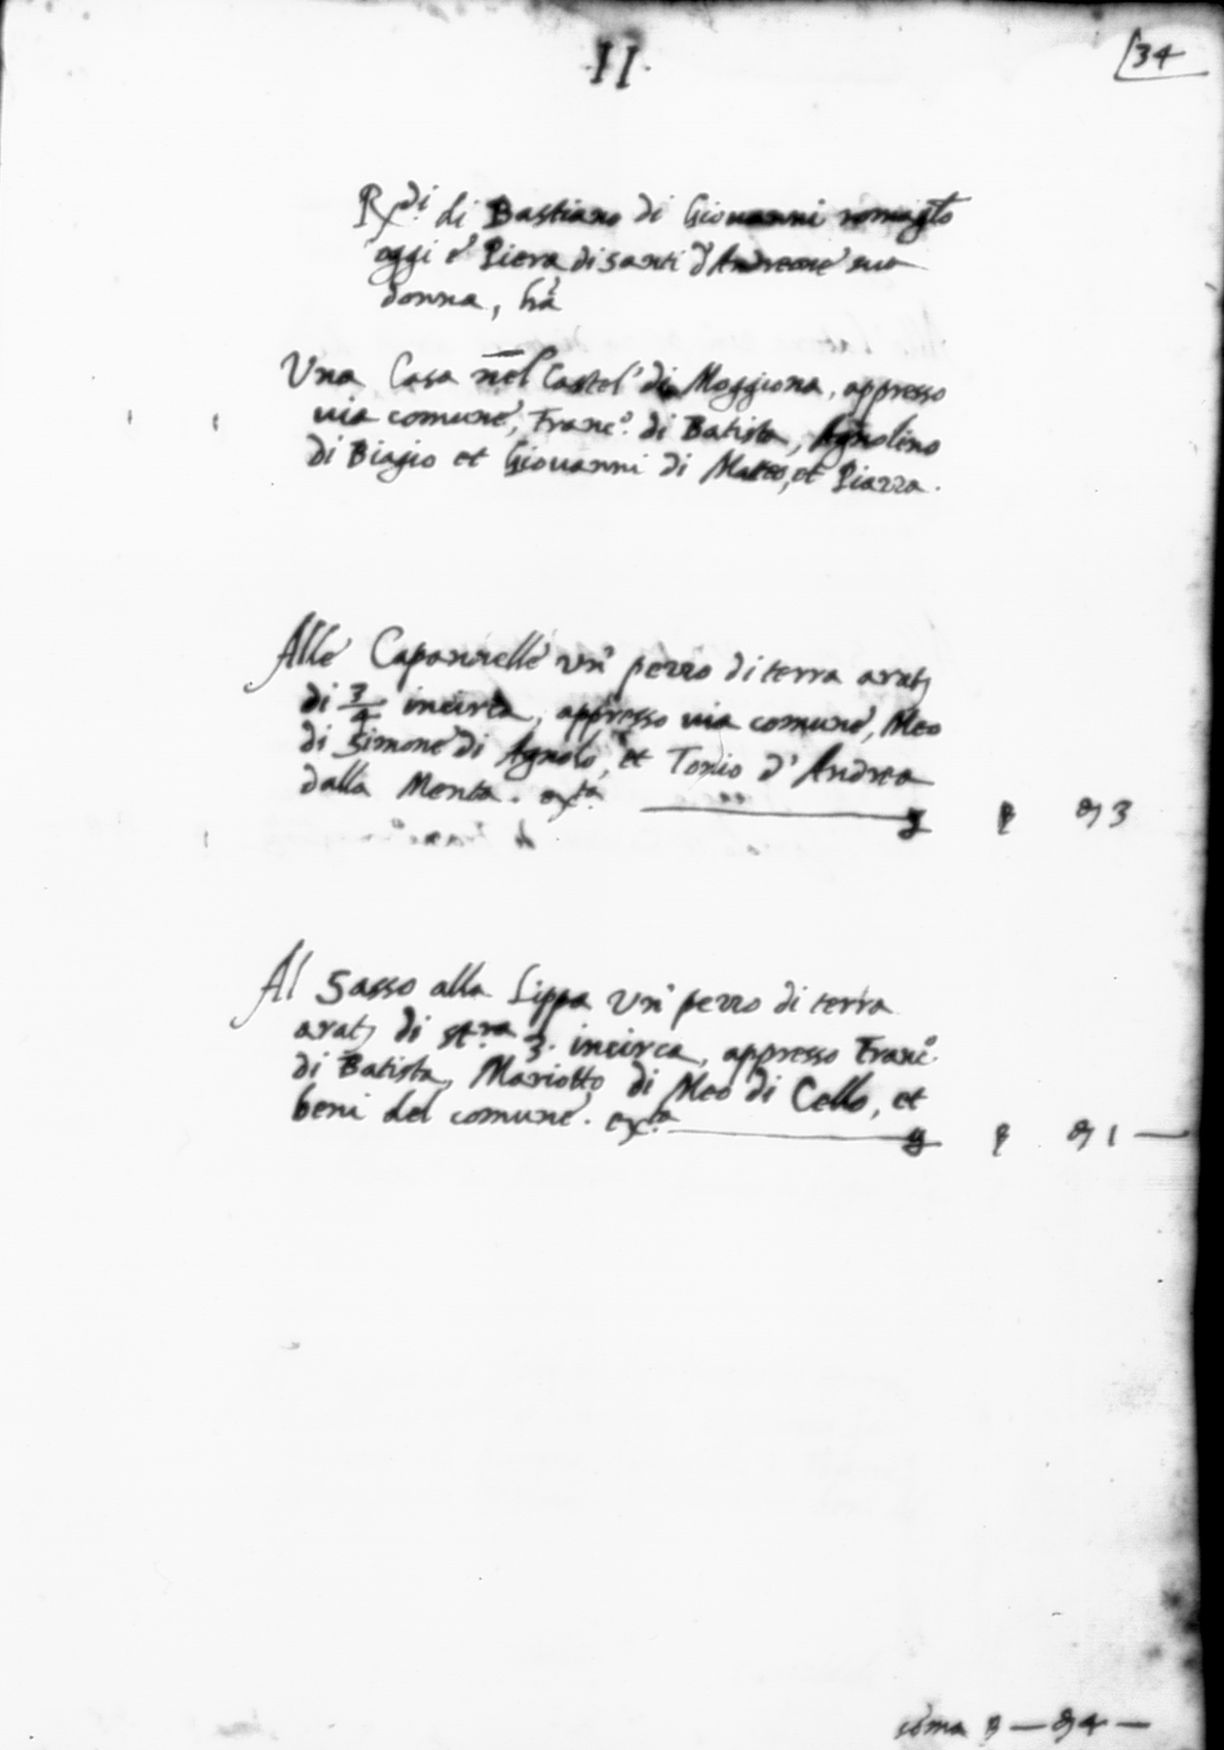 ·II·
34
Rx.di di Bastiano di Giovanni romag.lo
oggi è Piera di santi d'Andreone sua
donna, hà
Una Casa nel Castel' di Moggiona, appresso
via comune, Franc.o di Batista, Agnolino
di Biagio et Giovanni di Matteo, et Piazza.
Alle Capannelle un' pezzo di terra arat,
di 3/4 incirca, appresso via comune, Meo
di Simone di Agnolo, et Tonio d'Andrea
dalla Menta. ex.ta 3
Al Sasso alla Lippa un' pezzo di terra
arat, di st.ra 3. incirca, appresso Franc.o
di Batista, Mariotto di Meo di Cello, et
beni del comune. ex.ta 1 —
soma — 4 —